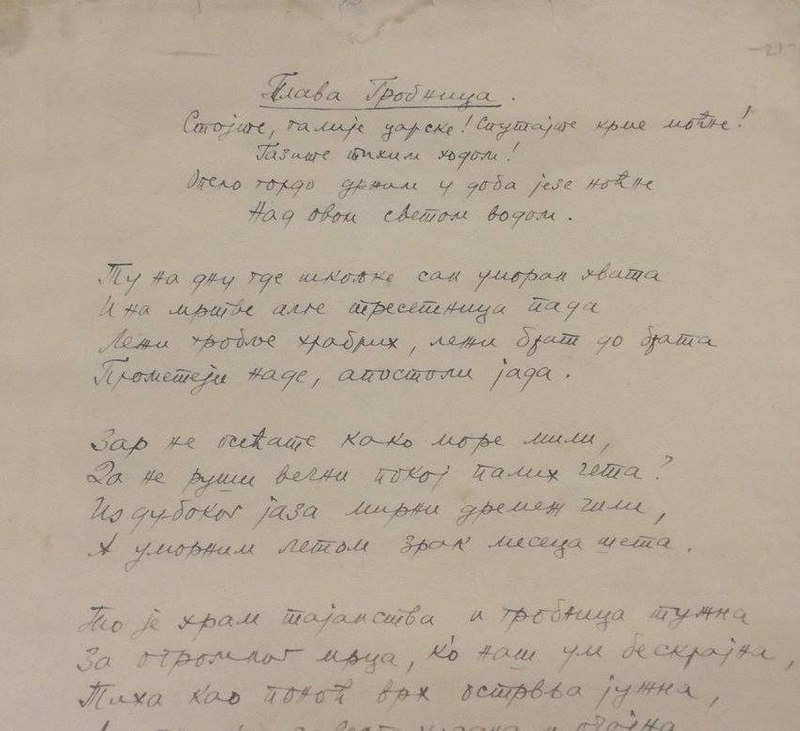 -21-
Плава Гробница.
Стојте, галије царске! Спутајте крме моћне!
Газите тихим ходом!
Опело гордо држим у доба језе ноћне
Над овом светом водом.
Ту на дну где шкољке сан уморан хвата
И на мртве алге тресетница пада
Лежи гробље храбрих, лежи брат до брата
Прометеји наде, апостоли јада.
Зар не осећате како море мили,
Да не руши вечни покој палих чета?
Из дубоког јаза мирни дремеж чили,
А уморним летом зрак месеца шета.
То је храм тајанства и гробница тужна
За огромног мрца, к'о наш ум бескрајна,
Тиха као поноћ врх острвља јужна,
хладна и очајна